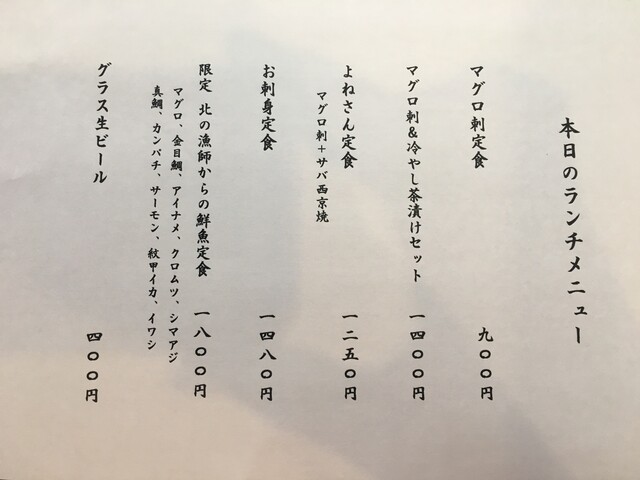 本日のランチメニュー
マグロ刺定食 九〇〇円
マグロ刺&冷やし茶漬けセット 一四〇〇円
よねさん定食 一二五〇円
マグロ刺+サバ西京焼
お刺身定食 一四八〇円
限定 北の漁師からの鮮魚定食 一八〇〇円
マグロ、金目鯛、アイナメ、クロムツ、シマアジ
真鯛、カンパチ、サーモン、紋甲イカ、イワシ
グラス生ビール 四〇〇円